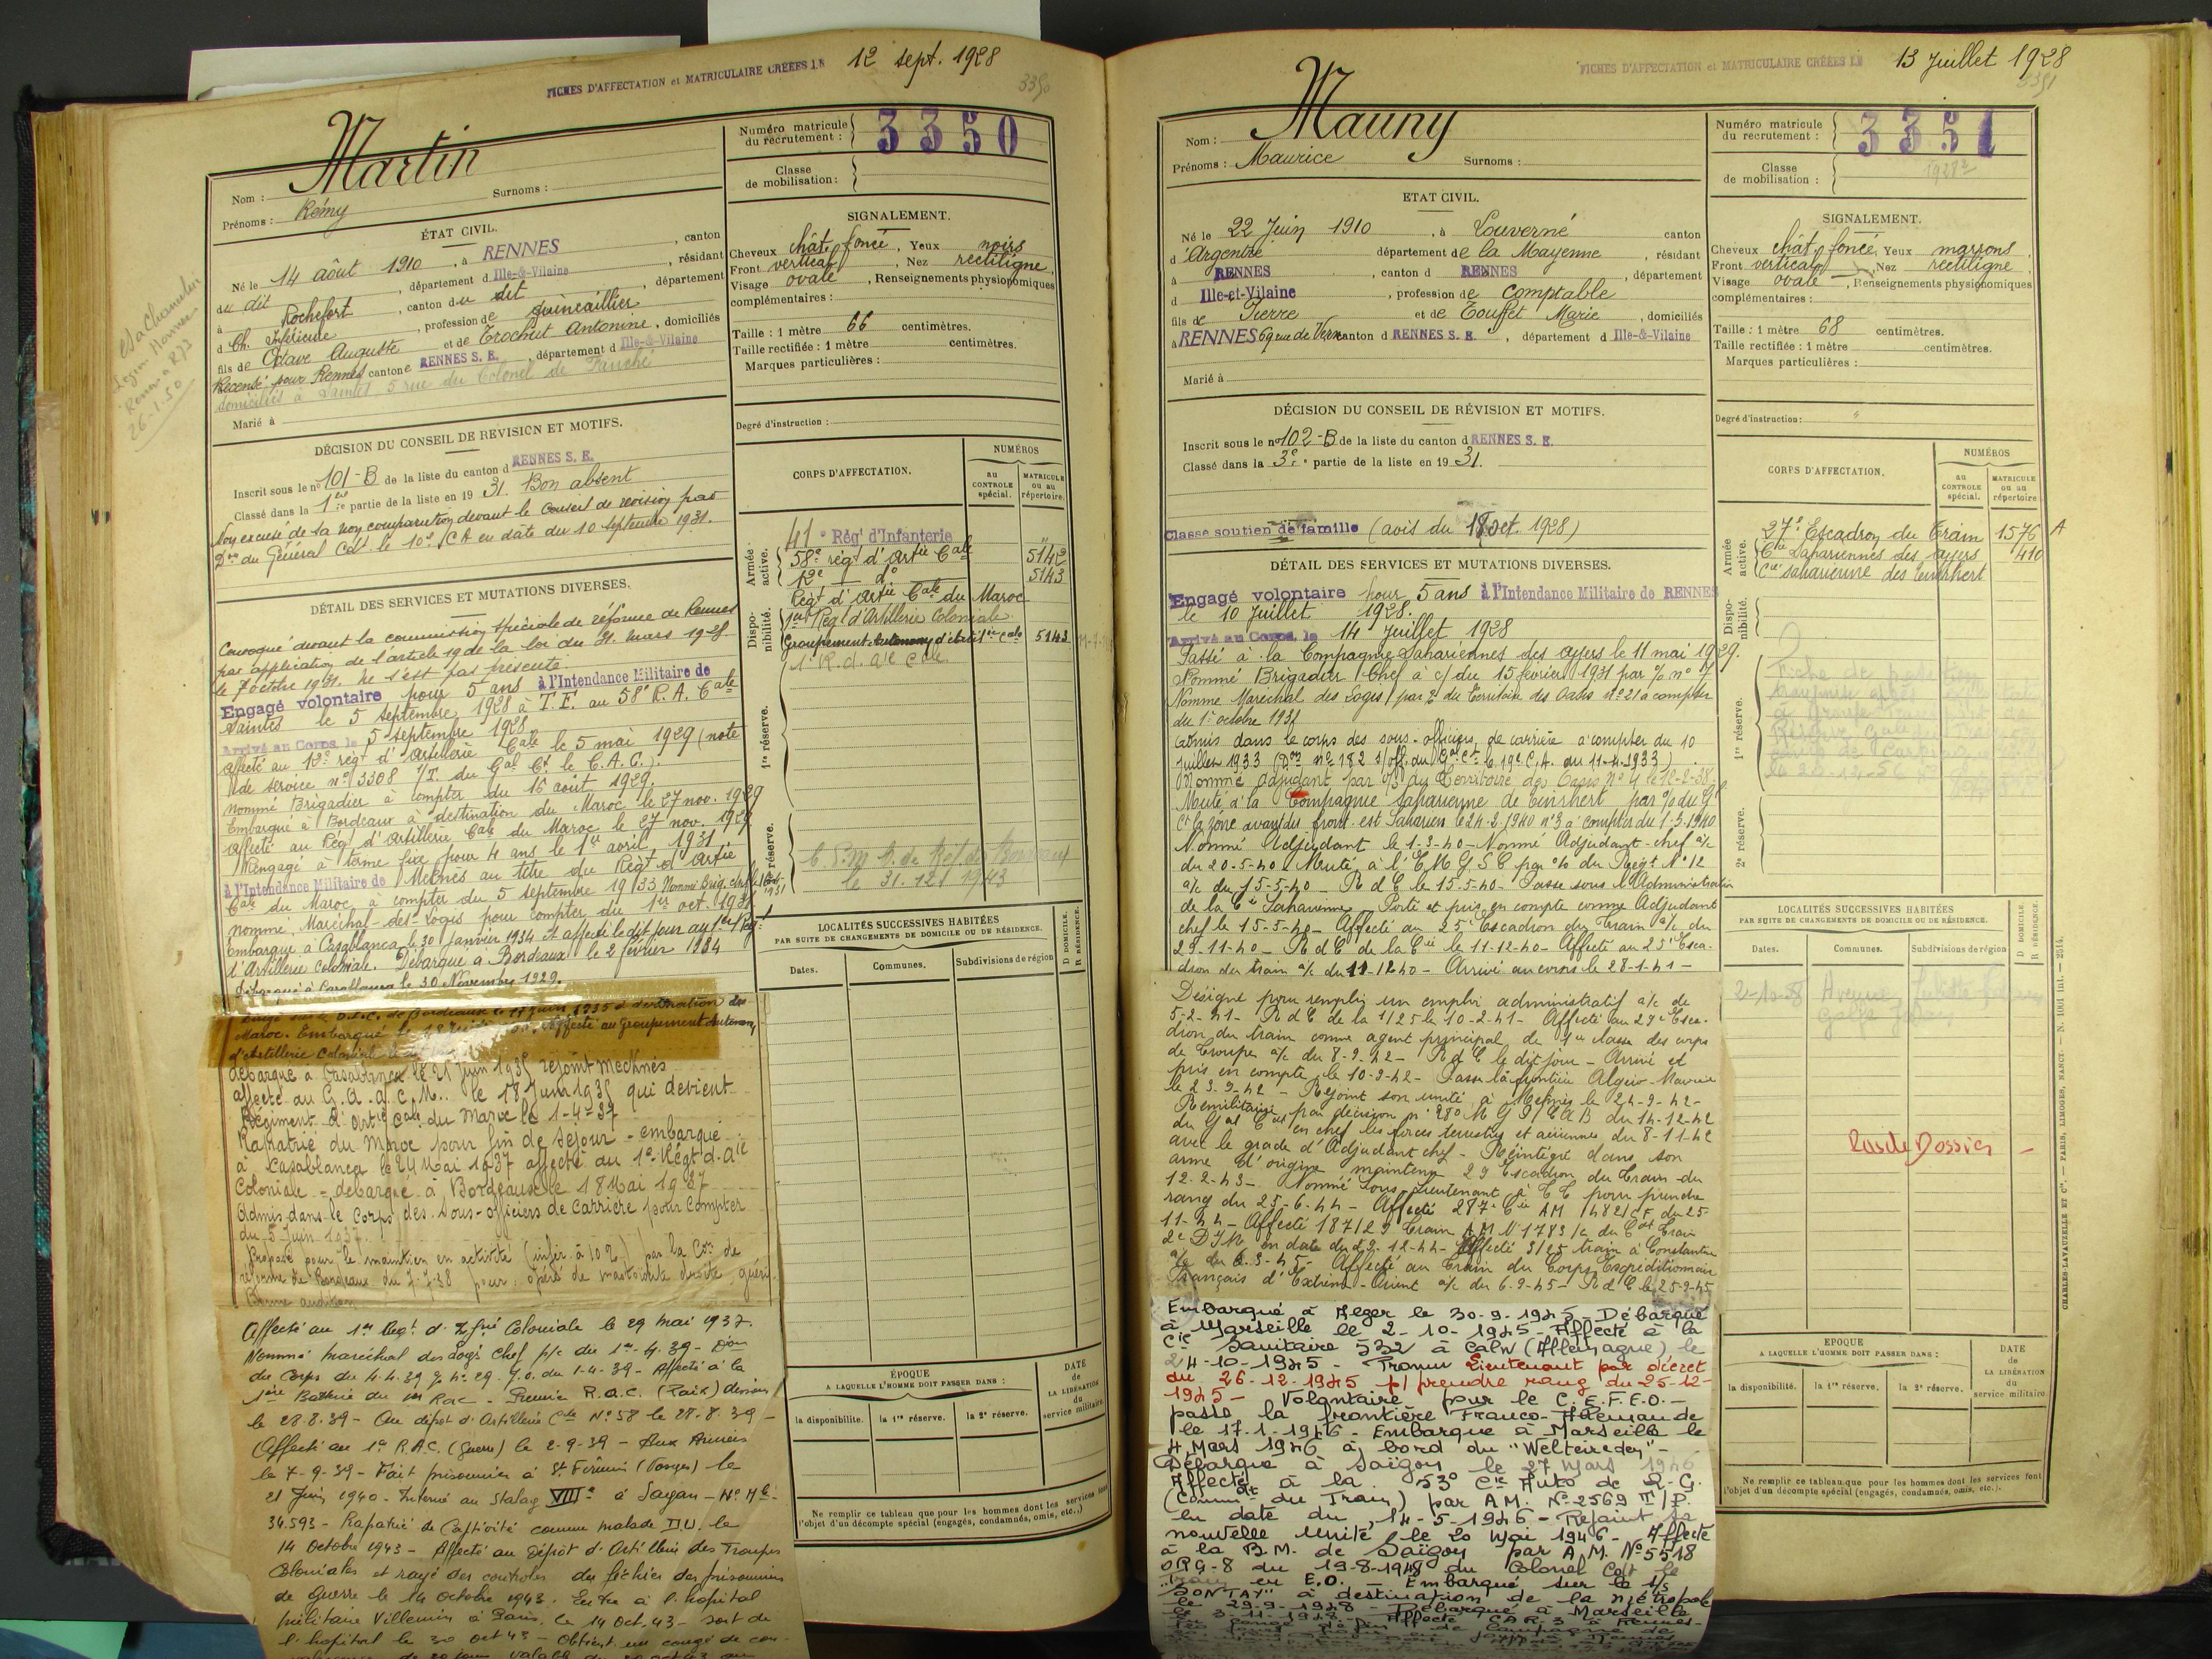 FICHES D'AFFECTATION et MATRICULAIRE CRÉÉES LE 12 sept. 1928
3350
Nom : Martin
Prénoms : Rémy Surnoms :
Numéro matricule du recrutement : 3350
Classe de mobilisation :
ÉTAT CIVIL.
Né le 14 août 1910, à RENNES, canton
du dit, département d Ille-&-Vilaine, résidant
à Rochefort, canton du dit, département
d Ch. Inférieure, profession de quincaillier
fils de Octave Auguste et de Trochut Antonine, domiciliés
Recensé pour Rennes canton RENNES S. E., département d Ille-&-Vilaine
domiciliés à Saintes 5 rue du Colonel de
Marié à
SIGNALEMENT.
Cheveux chât foncé, Yeux noirs
Front vertical, Nez rectiligne
Visage ovale, Renseignements physionomiques
complémentaires :
Taille : 1 mètre 66 centimètres.
Taille rectifiée : 1 mètre centimètres.
Marques particulières :
Degré d'instruction :
DÉCISION DU CONSEIL DE REVISION ET MOTIFS.
Inscrit sous le n° 101-B de la liste du canton d RENNES S. E.
Classé dans la 1re partie de la liste en 19 31. Bon absent
Non excusé de sa non comparution devant le conseil de revision par
Don du Général Cdt le 10e CA en date du 10 septembre 1931.
DÉTAIL DES SERVICES ET MUTATIONS DIVERSES.
Convoqué devant la commission spéciale de réforme de Rennes
par application de l'article 19 de la loi du 31 mars 1928
le 7 octobre 1931. Ne s'est pas présenté.
Engagé volontaire pour 5 ans à l'Intendance Militaire de
Saintes le 5 septembre 1928 à T.E. au 58e R.A. Cale
Arrivé au Corps le 5 septembre 1928
Affecté au 12e régt d'artillerie Cale le 5 mai 1929 (note
de service n° 3308 1/T. du Gal Ct le C.A.C.).
Nommé Brigadier à compter du 16 août 1929.
Embarqué à Bordeaux à destination du Maroc le 27 nov. 1929
Affecté au Régt d'artillerie Cale du Maroc le 27 nov. 1929
Rengagé à terme fixe pour 4 ans le 1er avril 1931
à l'Intendance Militaire de Meknes au titre du Régt d'Artie
Cale du Maroc à compter du 5 septembre 1933 Nommé Brig. chef
nommé Maréchal-des-Logis pour compter du 1er oct. 193
Embarqué à Casablanca le 30 janvier 1934 et affecté le dit jour au 1er Régt
d'Artillerie Coloniale. Débarqué à Bordeaux le 2 février 1934
Débarqué à Casablanca le 30 Novembre 1929.
D.I.C. de Bordeaux le 17 juin 1935 à destination du
Maroc. Embarqué le 18 Affecté au Groupement Autonome
d'Artillerie Coloniale
débarqué à Casablanca le 21 Juin 1935 rejoint Mecknès
affecté au G.A.A.C.M. le 18 Juin 1935 qui devient
Régiment d'Artie Cale du Maroc le 1-4-37
Rapatrié du Maroc pour fin de séjour - embarqué
à Casablanca le 24 Mai 1937 affecté au 1er Régt d'Aie
Coloniale - débarqué à Bordeaux le 18 Mai 1937
Admis dans le Corps des Sous-officiers de Carrière pour compter
du 5 Juin 193
Proposé pour le maintien en activité (infér. à 10%) par la Con de
réforme de Bordeaux du 7-7-38 pour : opéré de mastoïdite droite, guéri
Bonne audition
Affecté au 1er Regt d' Coloniale le 29 mai 1937.
Nommé maréchal des logis chef p/c du 1er-4-39 - Don
du Corps du 4.4.39 J.O. du 1-4-39 - Affecté à la
1ère Batterie du 1er Rac - Premier R.a.c. (Paix) dissous
le 28.8.39 - Au dépôt d'Artillerie Cle N° 58 le 28.8.39 -
Affecté au 1er R.A.C. (Guerre) le 2-9-39 - Aux Armées
le 7-9-39 - Fait prisonnier à St Firmin (Vosges) le
21 Juin 1940 - Interné au Stalag VIII C à Sagan - N° Mle
34.593 - Rapatrié de Captivité comme malade D.U. le
14 Octobre 1943 - Affecté au Dépôt d'Artillerie des Troupes
Coloniales et rayé des contrôles du fichier des prisonniers
de Guerre le 14 Octobre 1943. Entre à l'hôpital
militaire Villemin à Paris. le 14 Oct. 43 - sort de
l'hôpital le 30 Oct 43 - Obtient un congé de con-
CORPS D'AFFECTATION.
NUMÉROS
au CONTROLE spécial.
MATRICULE ou au répertoire.
Armée active.
41e Rég' d'Infanterie "
58e régt d'artie Cale 5142
12e — do 5143
Régt d'artie Cale du Maroc
Disponibilité.
1er Régt d'Artillerie Coloniale
Groupement Autonome d'Artie Cale 5143
1er R.d.aie Cale
1re réserve.
2e réserve.
le 31.12 1943
LOCALITÉS SUCCESSIVES HABITÉES
PAR SUITE DE CHANGEMENTS DE DOMICILE OU DE RÉSIDENCE.
D DOMICILE. R RÉSIDENCE.
Dates. Communes. Subdivisions de région
ÉPOQUE
A LAQUELLE L'HOMME DOIT PASSER DANS :
DATE de LA LIBÉRATION du service militaire.
la disponibilité. la 1re réserve. la 2e réserve.
Ne remplir ce tableau que pour les hommes dont les services font
l'objet d'un décompte spécial (engagés, condamnés, omis, etc..)
26-1-50
FICHES D'AFFECTATION et MATRICULAIRE CRÉÉES LE 13 Juillet 1928
3351
Nom : Mauny
Prénoms : Maurice Surnoms :
Numéro matricule du recrutement : 3351
Classe de mobilisation : 1928
ETAT CIVIL.
Né le 22 Juin 1910, à Louverné canton
d'Argentré département de la Mayenne, résidant
à RENNES, canton d RENNES, département
d Ille-et-Vilaine, profession de comptable
fils de Pierre et de Touffet Marie, domiciliés
à RENNES 69 rue de Vern canton d RENNES S. E., département d Ille-&-Vilaine
Marié à
SIGNALEMENT.
Cheveux chât foncé, Yeux marrons
Front vertical, Nez rectiligne
Visage ovale, Renseignements physionomiques
complémentaires :
Taille : 1 mètre 68 centimètres.
Taille rectifiée : 1 mètre centimètres.
Marques particulières :
Degré d'instruction : "
DÉCISION DU CONSEIL DE RÉVISION ET MOTIFS.
Inscrit sous le n° 102-B de la liste du canton d RENNES S. E.
Classé dans la 3e partie de la liste en 19 31.
Classé soutien de famille (avis du 18 oct. 1928)
DÉTAIL DES SERVICES ET MUTATIONS DIVERSES.
Engagé volontaire pour 5 ans à l'Intendance Militaire de RENNES
le 10 Juillet 1928.
Arrivé au Corps le 14 Juillet 1928
Passé à la Compagnie Sahariennes des Ajjers le 11 mai 1929.
Nommé Brigadier Chef à c/ du 15 février 1931 par % n° 7
Nommé Maréchal des Logis par % du Territoire des Oasis n° 21 à compter
du 1er octobre 1931
Admis dans le corps des sous-officiers de carrière à compter du 10
juillet 1933 (Don n° 182 s/off. du Gal Ct le 19e C.A. du 11-4-1933)
Nommé adjudant par % du Territoire des Oasis N° 4 le 12-2-38
Muté à la Compagnie saharienne de Tinrhert par % du Gl
Ct la zone avant du front est Saharien le 24-2-1940 n° 3 à compter du 1-3-1940
Nommé Adjudant le 1-3-40 - Nommé Adjudant-chef a/c
du 20-5-40 Muté à l'E.M.G.S.C par % du Regt N° 12
a/c du 15-5-40 - R d C le 15.5.40 - Passé sous l'Administration
de la Cie Saharienne Porté et pris en compte comme Adjudant
chef le 15-5-40 - Affecté au 25e Escadron du Train a/c du
29-11-40 - R d C de la Cie le 11-12-40 - Affecté au 25e Esca-
dron du train a/c du 11-12-40 - Arrivé au corps le 28-1-41 -
Désigné pour remplir un emploi administratif a/c de
5-2-41 - R d C de la 1/25 le 10-2-41 - Affecté au 29e Esca-
dron du train comme agent principal de 1re classe des corps
de Troupe a/c du 8-9-42 - R d C le dit jour - Arrivé et
pris en compte le 10-9-42 - Passe la frontière Algéro-Maroc
le 23-9-42 - Rejoint son unité à Meknès le 24-9-42 -
Remilitarisé par décision n° 280 du 14-12-42
du Gal Cdt en chef les forces terrestres et aériennes du 8-11-42
avec le grade d'Adjudant chef - Réintégré dans son
arme d'origine maintenu 29 Escadron du Train du
12-2-43 - Nommé Sous Lieutenant à T.T. pour prendre
rang du 25-6-44 - Affecté 287e Cie AM 1482/CF du 25
11-44 - Affecté 187/29 Train A.M. N° 1783 /c du Cdt Train
2e DIM en date du 29-12-44 - Affecté 3/25 train à Constantine
a/c du 6-3-45 - Affecté au train du Corps Expéditionnaire
Français d'Extrême-Orient a/c du 6-9-45 - R d C le 25-9-45
Embarqué à Alger le 30-9-1945 - Débarqué
à Marseille le 2-10-1945 - Affecté à la
Cie Sanitaire 532 à Calw (Allemagne) le
24-10-1945 - Promu Lieutenant par décret
du 26-12-1945 p/ prendre rang du 25-12-
1945 - Volontaire pour le C.E.F.E.O. -
passe la frontière Franco-Allemande
le 17-1-1946 - Embarqué à Marseille le
4 Mars 1946 à bord du "Welteireden" -
Débarqué à Saïgon le 27 Mars 1946
Affecté à la 53e Cie Auto de Q.G.
(Commdt du Train) par A.M. N° 2569 II/P.
en date du 14-5-1946 - Rejoint sa
nouvelle unité le 20 Mai 1946 - Affecté
à la B.M. de Saïgon par A.M. N° 5518
ORG-8 du 19-8-1948 du Colonel Cdt le
Train en E.O. - Embarqué sur le s/s
"SONTAY" à destination de la métropole
le 29-9-1948 - Débarqué à Marseille
le 3-11-1948 - Affecté C.A.R. 3 à Rennes -
CORPS D'AFFECTATION.
NUMÉROS
au CONTROLE spécial.
MATRICULE ou au répertoire
Armée active.
27e Escadron du Train 1576 A
Cie Sahariennes des Ajjers 410
Cie saharienne des Tinrhert
Disponibilité.
1re réserve.
2e réserve.
LOCALITÉS SUCCESSIVES HABITÉES
PAR SUITE DE CHANGEMENTS DE DOMICILE OU DE RÉSIDENCE.
D DOMICILE. R RÉSIDENCE.
Dates. Communes. Subdivisions de région
2-10-58 Avenue
Golfe Juan
Pas de Dossier -
EPOQUE
A LAQUELLE L'HOMME DOIT PASSER DANS :
DATE de LA LIBÉRATION du service militaire.
la disponibilité. la 1re réserve. la 2e réserve.
Ne remplir ce tableau que pour les hommes dont les services font
l'objet d'un décompte spécial (engagés, condamnés, omis, etc.).
CHARLES-LAVAUZELLE ET Cie. — PARIS, LIMOGES, NANCY.